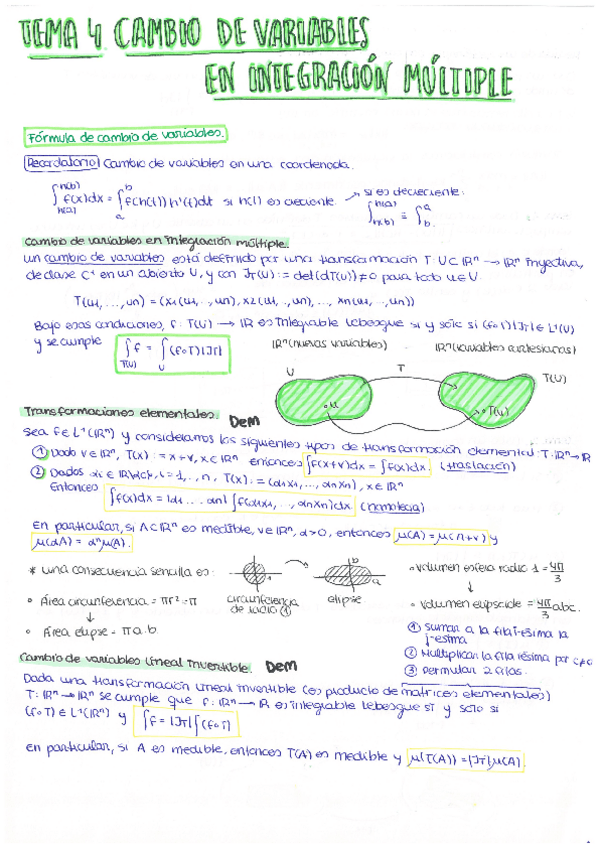 TEMA 4 CAMBIO DE VARIABLES
EN INTEGRACIÓN MÚLTIPLE
Fórmula de cambio de variables.
Recordatorio Cambio de variables en una coordenada.
∫_{h(a)}^{h(b)} f(x)dx = ∫_a^b f(h(t)) h'(t)dt si h(t) es creciente → si es decreciente: ∫_{h(b)}^{h(a)} = ∫_b^a.
Cambio de variables en integración múltiple.
Un cambio de variables está definido por una transformación T: U⊂ℝⁿ → ℝⁿ inyectiva,
de clase C¹ en un abierto U, y con JT(u) := det(dT(u)) ≠ 0 para todo u∈U.
T(u1, ..., un) = (x1(u1,..,un), x2(u1,..,un), ..., xn(u1,..,un))
Bajo esas condiciones, f: T(U) → ℝ es integrable Lebesgue si y solo si (f∘T)|JT| ∈ L¹(U)
y se cumple ∫_{T(U)} f = ∫_U (f∘T)|JT|
ℝⁿ(nuevas variables) ℝⁿ(variables cartesianas)
U T T(U)
u T(u)
Transformaciones elementales. Dem
Sea f∈L¹(ℝⁿ) y consideramos los siguientes tipos de transformación elemental: T:ℝⁿ→ℝ
① Dado v∈ℝⁿ, T(x) := x+v, x∈ℝⁿ entonces ∫f(x+v)dx = ∫f(x)dx. (traslación)
② Dados αi∈ℝ\{0}, i=1,..,n, T(x) := (α1x1, ..., αnxn), x∈ℝⁿ
Entonces ∫f(x)dx = |α1 ... αn| ∫f(α1x1, ..., αnxn)dx. (homotecia)
En particular, si A⊂ℝⁿ es medible, v∈ℝⁿ, α>0, entonces μ(A) = μ(A+v) y
μ(αA) = αⁿμ(A).
* una consecuencia sencilla es:
∘ Área circunferencia = πr² = π
↓
∘ Área elipse = πa·b
circunferencia
de radio ①
b
a
elipse
∘ Volumen esfera radio 1 = 4π/3
↓
∘ Volumen elipsoide = 4π/3 abc.
① Sumar a la fila i-ésima la
j-ésima
② Multiplicar la fila iésima por c≠0
③ Permutar 2 filas.
Cambio de variables lineal invertible. Dem
Dada una transformación lineal invertible (es producto de matrices elementales)
T: ℝⁿ→ℝⁿ se cumple que f: ℝⁿ→ℝ es integrable Lebesgue si y solo si
(f∘T) ∈ L¹(ℝⁿ) y ∫f = |JT| ∫(f∘T)
en particular, si A es medible, entonces T(A) es medible y μ(T(A)) = |JT|μ(A).